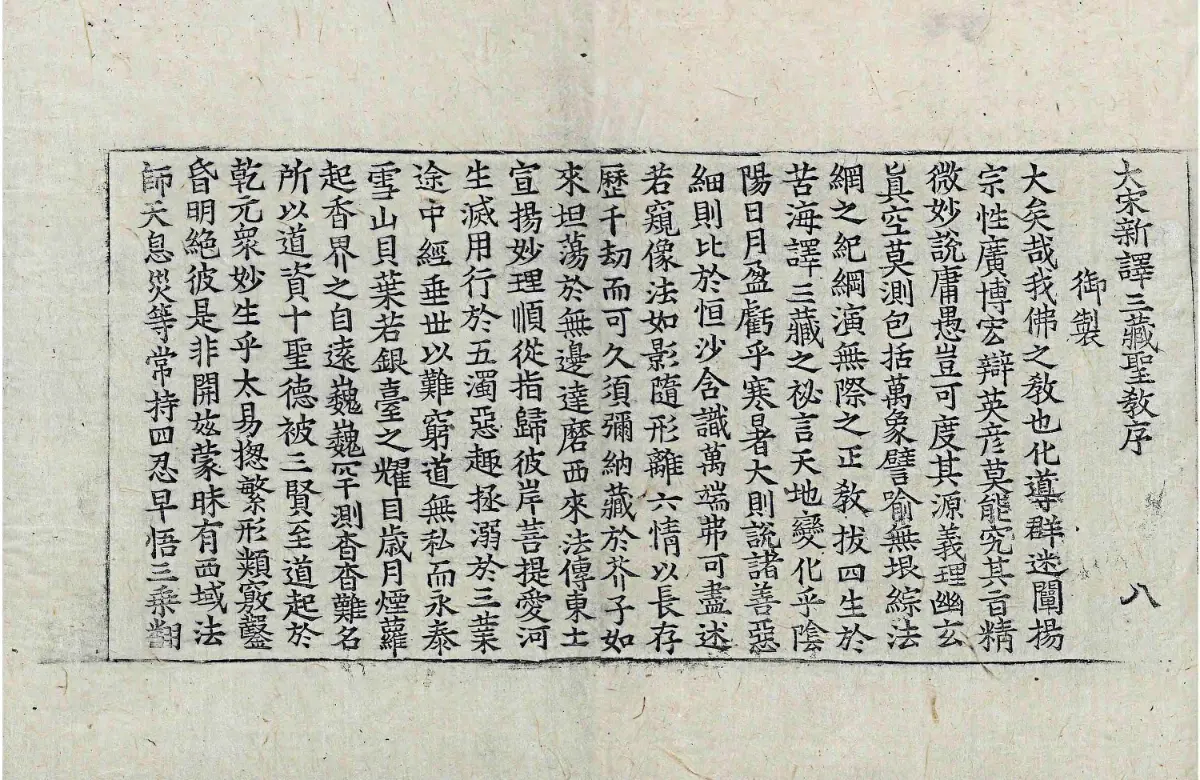 大宋新譯三藏聖敎序　八
御製
大矣哉我佛之敎也化導群迷闡揚
宗性廣博宏辯英彦莫能究其旨精
微妙說庸愚豈可度其源義理幽玄
眞空莫測包括萬象譬喻無垠綜法
網之紀綱演無際之正敎拔四生於
苦海譯三藏之祕言天地變化乎陰
陽日月盈虧乎寒暑大則說諸善惡
細則比於恒沙含識萬端弗可盡述
若窺像法如影隨形離六情以長存
歷千劫而可久須彌納藏於芥子如
來坦蕩於無邊達磨西來法傳東土
宣揚妙理順從指歸彼岸菩提愛河
生滅用行於五濁惡趣拯溺於三業
途中經垂世以難窮道無私而永泰
雪山貝葉若銀臺之耀目歲月煙蘿
起香界之自遠巍巍罕測杳杳難名
所以道資十聖德被三賢至道起於
乾元衆妙生乎太易揔繁形類竅鑿
昏明絶彼是非開玆蒙昧有西域法
師天息災等常持四忍早悟三乘翻